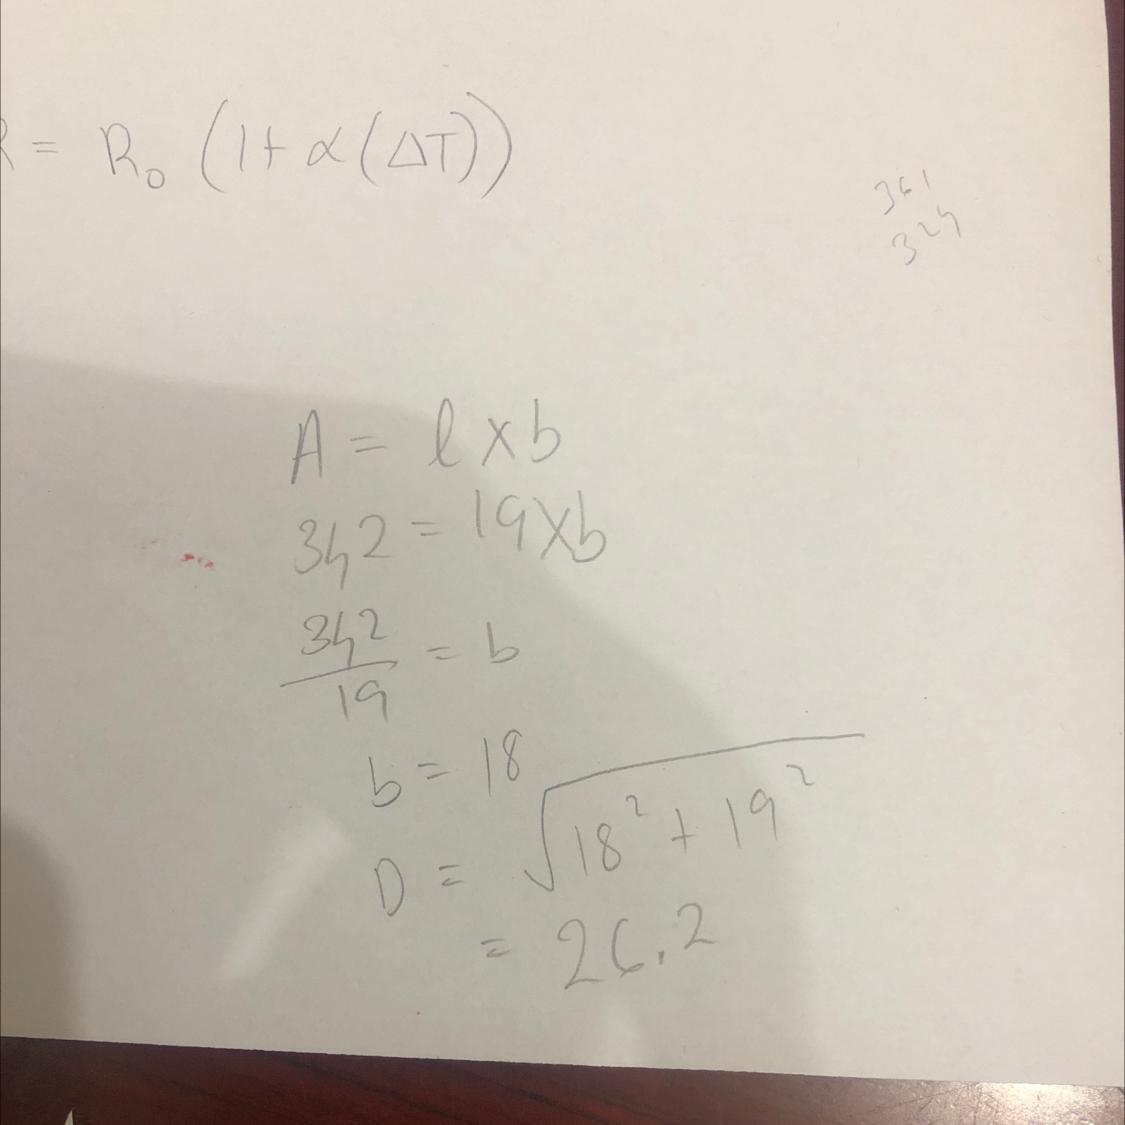 R = R₀ (1 + α(ΔT))
361
324
A = l × b
342 = 19 × b
342/19 = b
b = 18
D = √(18² + 19²)
= 26.2